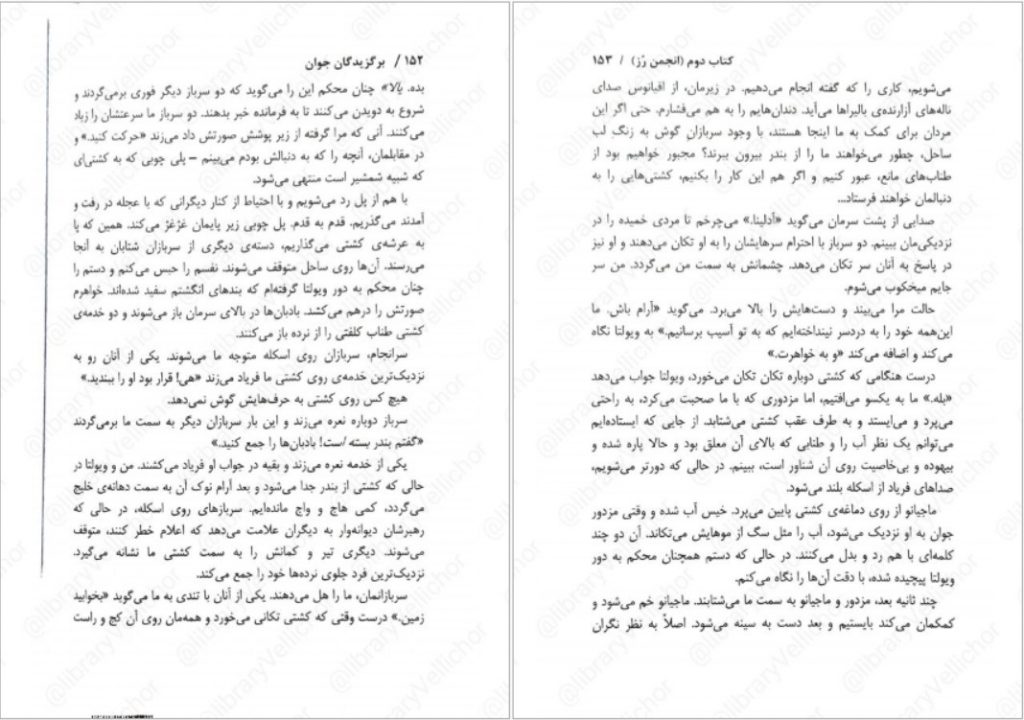 ۱۵۲ / برگزیدگان جوان
بده. یالا» چنان محکم این را می‌گوید که دو سرباز دیگر فوری برمی‌گردند و
شروع به دویدن می‌کنند تا به فرمانده خبر بدهند. دو سرباز ما سرعتشان را زیاد
می‌کنند. آنی که مرا گرفته از زیر پوشش صورتش داد می‌زند «حرکت کنید.» و
در مقابلمان، آنچه را که به دنبالش بودم می‌بینم – پلی چوبی که به کشتی‌ای
که شبیه شمشیر است منتهی می‌شود.
با هم از پل رد می‌شویم و با احتیاط از کنار دیگرانی که با عجله در رفت و
آمدند می‌گذریم. قدم به قدم. پل چوبی زیر پایمان غژغژ می‌کند. همین که پا
به عرشه‌ی کشتی می‌گذاریم، دسته‌ی دیگری از سربازان شتابان به آنجا
می‌رسند. آن‌ها روی ساحل متوقف می‌شوند. نفسم را حبس می‌کنم و دستم را
چنان محکم به دور ویولتا گرفته‌ام که بندهای انگشتم سفید شده‌اند. خواهرم
صورتش را درهم می‌کشد. بادبان‌ها در بالای سرمان باز می‌شوند و دو خدمه‌ی
کشتی طناب کلفتی را از نرده باز می‌کنند.
سرانجام، سربازان روی اسکله متوجه ما می‌شوند. یکی از آنان رو به
نزدیک‌ترین خدمه‌ی روی کشتی ما فریاد می‌زند «هی! قرار بود او را ببندید.»
هیچ کس روی کشتی به حرف‌هایش گوش نمی‌دهد.
سرباز دوباره نعره می‌زند و این بار سربازان دیگر به سمت ما برمی‌گردند
«گفتم بندر بسته است! بادبان‌ها را جمع کنید.»
یکی از خدمه نعره می‌زند و بقیه در جواب او فریاد می‌کشند. من و ویولتا در
حالی که کشتی از بندر جدا می‌شود و بعد آرام نوک آن به سمت دهانه‌ی خلیج
می‌گردد، کمی هاج و واج مانده‌ایم. سربازهای روی اسکله، در حالی که
رهبرشان دیوانه‌وار به دیگران علامت می‌دهد که اعلام خطر کنند، متوقف
می‌شوند. دیگری تیر و کمانش را به سمت کشتی ما نشانه می‌گیرد.
نزدیک‌ترین فرد جلوی نرده‌ها خود را جمع می‌کند.
سربازانمان، ما را هل می‌دهند. یکی از آنان با تندی به ما می‌گوید «بخوابید
زمین.» درست وقتی که کشتی تکانی می‌خورد و همه‌مان روی آن کج و راست
کتاب دوم (انجمن رُز) / ۱۵۳
می‌شویم، کاری را که گفته انجام می‌دهیم. در زیرمان، از اقیانوس صدای
ناله‌های آزارنده‌ی بالیراها می‌آید. دندان‌هایم را به هم می‌فشارم. حتی اگر این
مردان برای کمک به ما اینجا هستند، با وجود سربازان گوش به زنگِ لب
ساحل، چطور می‌خواهند ما را از بندر بیرون ببرند؟ مجبور خواهیم بود از
طناب‌های مانع، عبور کنیم و اگر هم این کار را بکنیم، کشتی‌هایی را به
دنبالمان خواهند فرستاد...
صدایی از پشت سرمان می‌گوید «آدلینا.» می‌چرخم تا مردی خمیده را در
نزدیکی‌مان ببینم. دو سرباز با احترام سرهایشان را به او تکان می‌دهند و او نیز
در پاسخ به آنان سر تکان می‌دهد. چشمانش به سمت من می‌گردد. من سر
جایم میخکوب می‌شوم.
حالت مرا می‌بیند و دست‌هایش را بالا می‌برد. می‌گوید «آرام باش. ما
این‌همه خود را به دردسر نینداخته‌ایم که به تو آسیب برسانیم.» به ویولتا نگاه
می‌کند و اضافه می‌کند «و به خواهرت.»
درست هنگامی که کشتی دوباره تکان تکان می‌خورد، ویولتا جواب می‌دهد
«بله.» ما به یکسو می‌افتیم، اما مزدوری که با ما صحبت می‌کرد، به راحتی
می‌پرد و می‌ایستد و به طرف عقب کشتی می‌شتابد. از جایی که ایستاده‌ایم
می‌توانم یک نظر آب را و طنابی که بالای آن معلق بود و حالا پاره شده و
بیهوده و بی‌خاصیت روی آن شناور است، ببینم. در حالی که دورتر می‌شویم،
صداهای فریاد از اسکله بلند می‌شود.
ماجیانو از روی دماغه‌ی کشتی پایین می‌پرد. خیس آب شده و وقتی مزدور
جوان به او نزدیک می‌شود، آب را مثل سگ از موهایش می‌تکاند. آن دو چند
کلمه‌ای با هم رد و بدل می‌کنند. در حالی که دستم همچنان محکم به دور
ویولتا پیچیده شده، با دقت آن‌ها را نگاه می‌کنم.
چند ثانیه بعد، مزدور و ماجیانو به سمت ما می‌شتابند. ماجیانو خم می‌شود و
کمکمان می‌کند بایستیم و بعد دست به سینه می‌شود. اصلاً به نظر نگران
@libraryVellichor